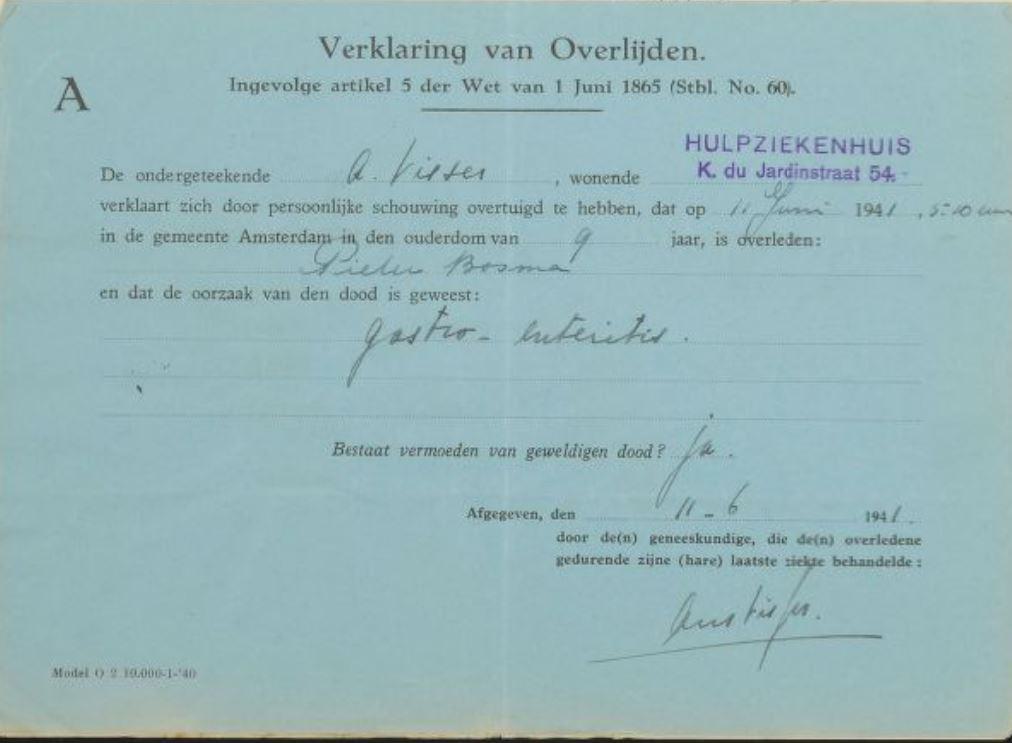 Verklaring van Overlijden.
A
Ingevolge artikel 5 der Wet van 1 Juni 1865 (Stbl. No. 60).
HULPZIEKENHUIS
De ondergeteekende A. Visser, wonende K. du Jardinstraat 54.
verklaart zich door persoonlijke schouwing overtuigd te hebben, dat op 11 Juni 1941, 5.10 uur
in de gemeente Amsterdam in den ouderdom van 9 jaar, is overleden:
Pieter Bosma
en dat de oorzaak van den dood is geweest:
gastro-enteritis.
Bestaat vermoeden van geweldigen dood? ja.
Afgegeven, den 11-6 1941.
door de(n) geneeskundige, die de(n) overledene
gedurende zijne (hare) laatste ziekte behandelde:
Model O 2 10.000-1-'40